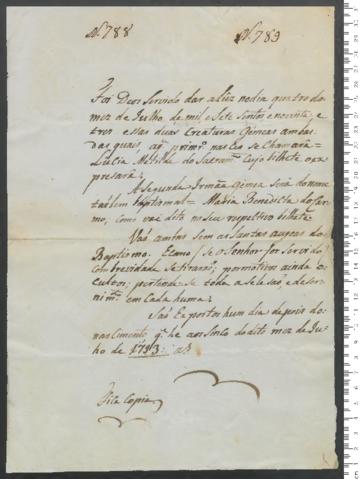 N. 788 N. 789
Foi Deos Servido dar á luz no dia quatro do
mez de Julho, de mil, e Sete Sentos e noventa, e
tres essas duas Creaturas Gémeas ambas.
Das quaes, a primr.ª nasceo se chamará =
Lucia Matilde do Sacram.to Cujo bilhete o ex
presará;
A Segunda Irmãa gemea Será do nome
tãobem baptismal = Maria Benedicta do Car-
mo, como vai dito no seu respectivo bilhete
Vaó ambas sem os Santas agoas do
Baptismo. E como / se o Senhor for servido /
Com brevidade se tiraraõ; por motivos ainda o-
cultos; pertende-se toda a
em Cada huma;
Saõ Expostas hum dia depois do
nascimento q. he aos Sinco do dito mez de Ju-
lho de 1793:
Fica Copia